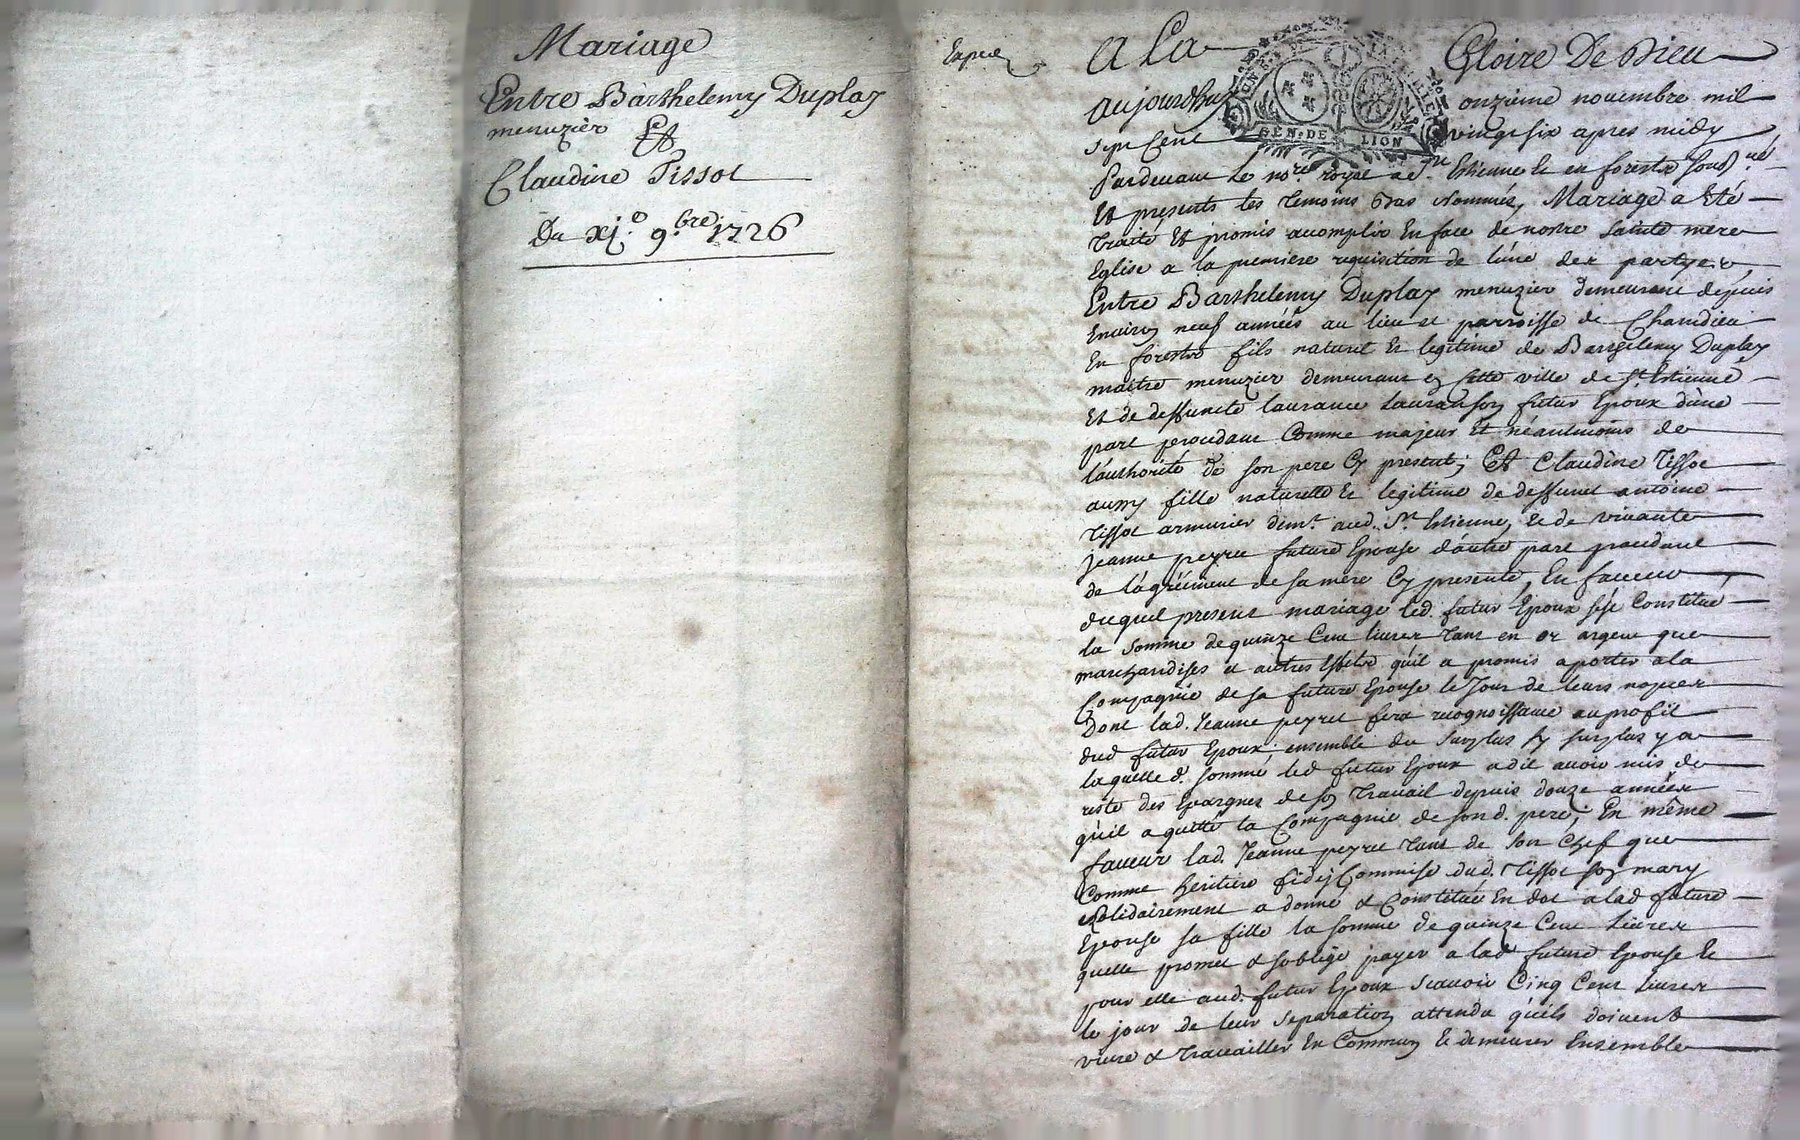 Mariage
Entre Barthelemy Duplay
menuzier Et
Claudine Tissot
Du xj.e 9.bre 1726
A La Gloire De Dieu
aujourdhuy onzième novembre mil
sept Cent vingt six apres midy
Pardevant Le no.re royal a S.t Estienne Et en forestz souss.né
Et presents les temoins bas Nommés, Mariage a Eté
traité Et promis accomplir En face de nostre Sainte mere
Eglise a la premiere requisition de l'une des partyes,
Entre Barthelemy Duplay menuzier demeurant depuis
Environ neuf années au lieu et parroisse de Chandieu
En forestz fils naturel et legitime de Barthelemy Duplay
maitre menuzier demeurant en cette ville de St Estienne
Et de deffuncte laurance Lauranson futur Epoux d'une
part procedant Comme majeur Et néantmoins de
l'authorité de son pere Cy present; Et Claudine Tissot
aussy fille naturelle et legitime de deffunct antoine
Tissot armurier dem.t aud. St Estienne, et de vivante
Jeanne peyre future Epouse d'autre part procedant
de l'agréement de sa mere Cy presente, En faveur
duquel present mariage led. futur Epoux s'est Constitué
la somme de quinze Cent livres tant en or argent que
marchandises et autres Effets qu'il a promis aporter a la
Compagnie de sa future Epouse le Jour de leurs nopces
Dont lad. Jeanne peyre fera recognoissance au profit
dud futur Epoux ensemble du surplus sy surplus y a
laquelle d. somme led futur Epoux a dit avoir mis de
reste des Epargnes de son travail depuis douze années
qu'il a quitté la Compagnie de sond. pere; En même
faveur lad. Jeanne peyre tant de son Chef que
Comme heritiere fidej Commise dud. Tissot son mary
solidairement a donné et Constitué En dot a lad future
Epouse sa fille la somme de quinze Cent Livres
quelle promet et soblige payer a lad future Epouse Et
pour elle aud. futur Epoux scavoir Cinq Cent Livres
le jour de leur separation attendu qu'ils doivent
vivre et travailler En Commun Et demeurer Ensemble
GEN. DE LION